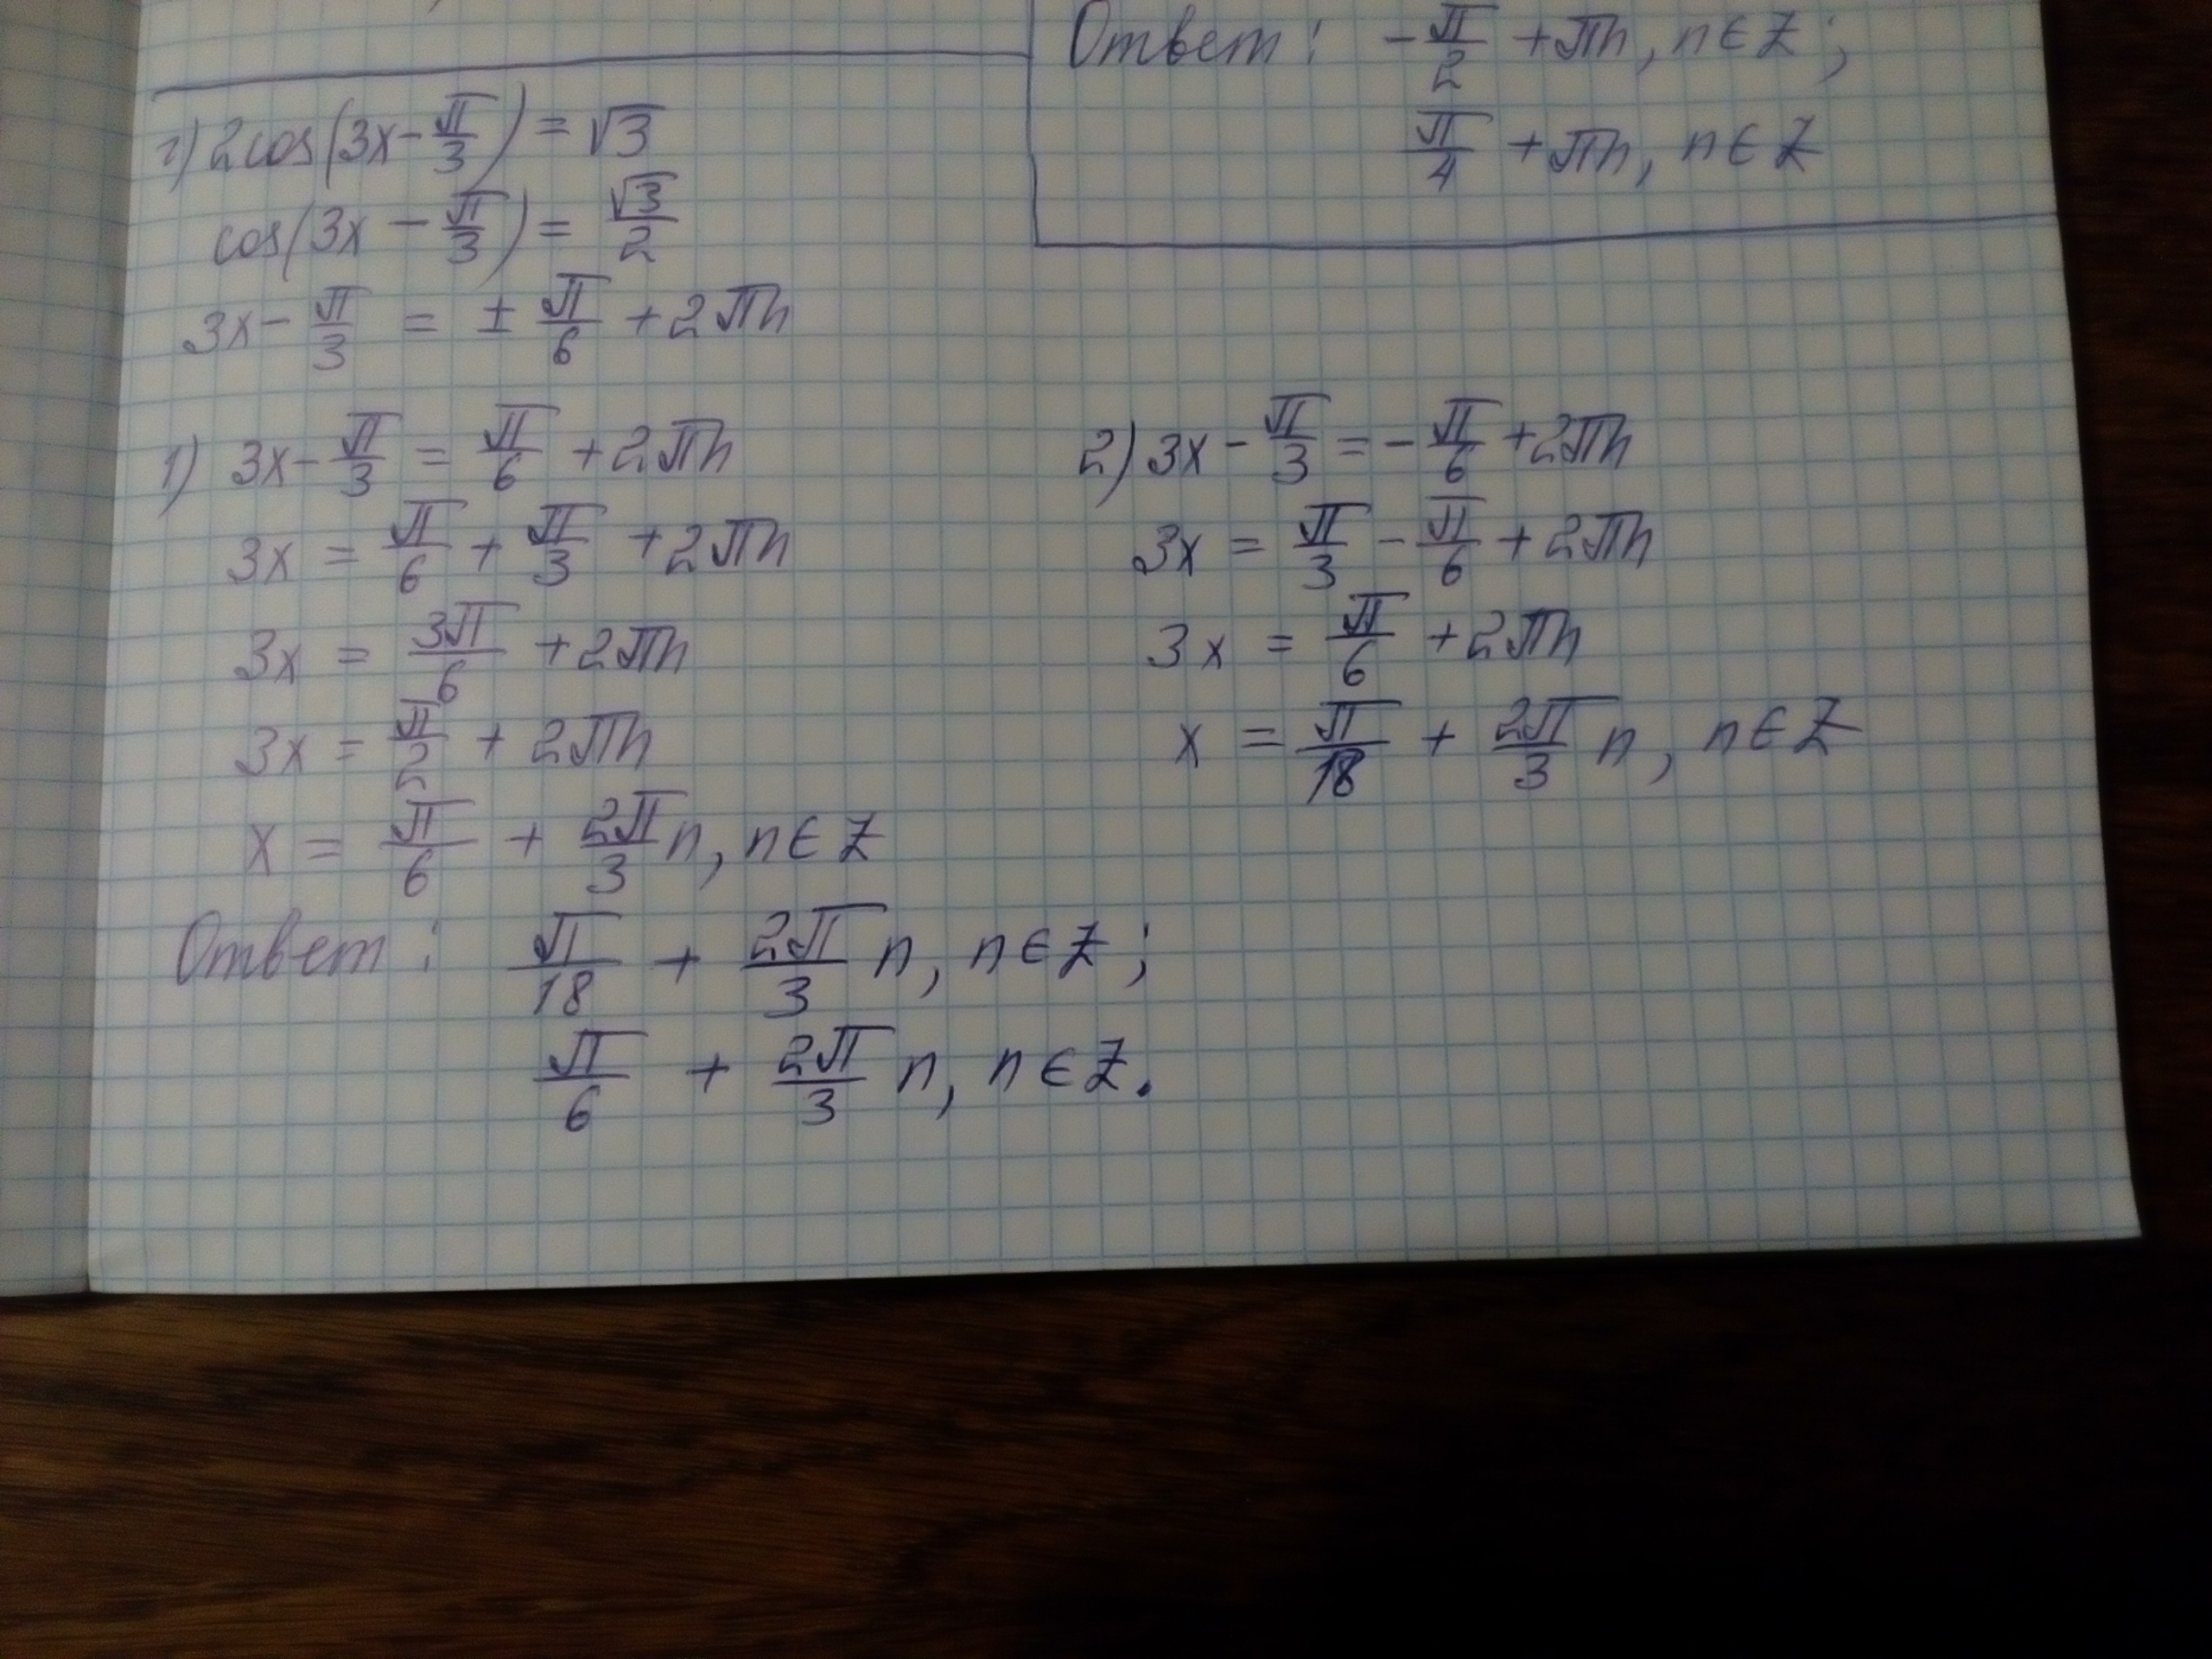 Ответ: -π/2 + πn, n∈Z;
π/4 + πn, n∈Z
г) 2cos(3x - π/3) = √3
cos(3x - π/3) = √3/2
3x - π/3 = ± π/6 + 2πn
1) 3x - π/3 = π/6 + 2πn
3x = π/6 + π/3 + 2πn
3x = 3π/6 + 2πn
3x = π/2 + 2πn
x = π/6 + 2π/3 n, n∈Z
2) 3x - π/3 = -π/6 + 2πn
3x = π/3 - π/6 + 2πn
3x = π/6 + 2πn
x = π/18 + 2π/3 n, n∈Z
Ответ: π/18 + 2π/3 n, n∈Z;
π/6 + 2π/3 n, n∈Z.